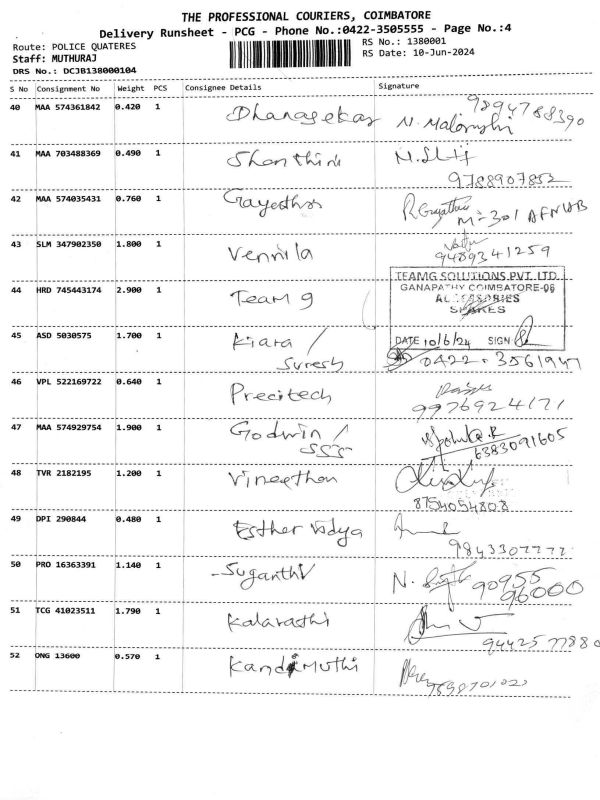 THE PROFESSIONAL COURIERS, COIMBATORE
Delivery Runsheet - PCG - Phone No.:0422-3505555 - Page No.:4
Route: POLICE QUATERES
RS No.: 1380001
Staff: MUTHURAJ
RS Date: 10-Jun-2024
DRS No.: DCJB138000104
S No Consignment No Weight PCS Consignee Details Signature
40 MAA 574361842 0.420 1 Dhanasekar 9894788390
41 MAA 703488369 0.490 1 Shanthini
9788907852
42 MAA 574035431 0.760 1 Gayathri M-301
43 SLM 347902350 1.800 1 Vennila
9489341259
TEAMG SOLUTIONS PVT. LTD.
GANAPATHY COIMBATORE-06
ACCESSORIES
SPARES
44 HRD 745443174 2.900 1 Team g
DATE 10/6/24 SIGN
45 ASD 5030575 1.700 1 Kiara /
Suresh 0422-3561947
46 VPL 522169722 0.640 1 Precitech
9976924171
47 MAA 574929754 1.900 1 Godwin /
SSS 6383091605
48 TVR 2182195 1.200 1 Vineethan
8754054808
49 DPI 290844 0.480 1 Esther Vidya
50 PRO 16363391 1.140 1 Suganthi N. 90955
96000
51 TCG 41023511 1.790 1 Kalavathi
9442577880
52 ONG 13600 0.570 1 Kandimuthi